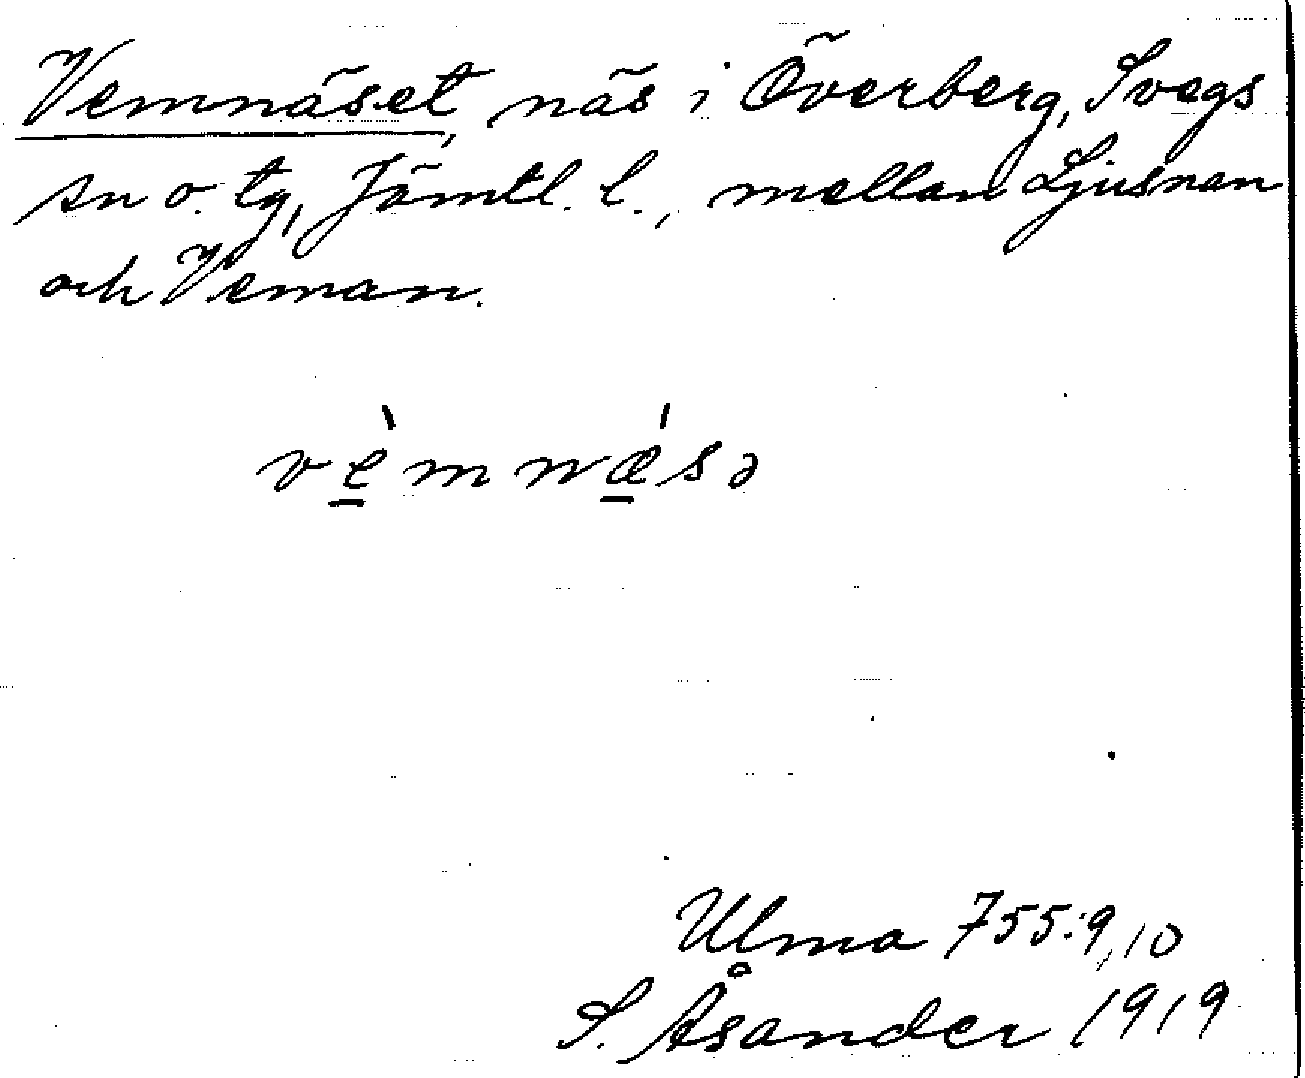 Vemnäset, näs i Överberg, Svegs
sn o. tg, Jämtl. l., mellan Ljusnan
och Veman.
vè̱mnǽ̱sə
Ulma 755:9,10
S. Åsander 1919